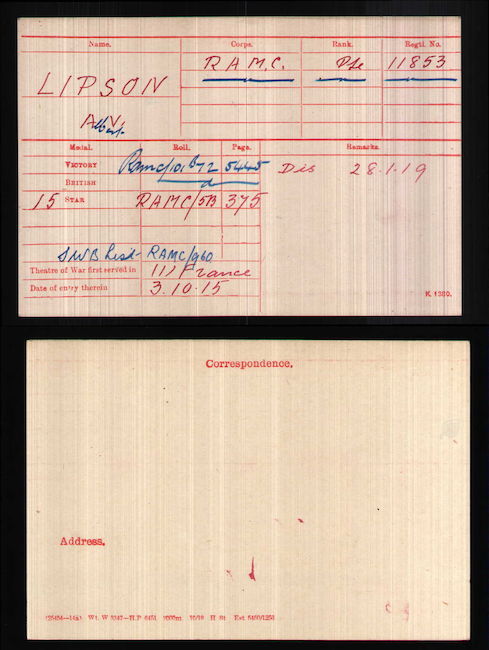 Name. Corps. Rank. Regtl. No.
LIPSON R A M.C. Pte 11853
Albert
Medal. Roll. Page. Remarks.
VICTORY RAMC/101 B72 5445 Dis 28.1.19
BRITISH
15 STAR RAMC/5B 375
SWB List RAMC/960
Theatre of War first served in (1) France
Date of entry therein 3.10.15
K. 1380.
Correspondence.
Address.
Wt. W 5347—H.P 6451 10/18 H St